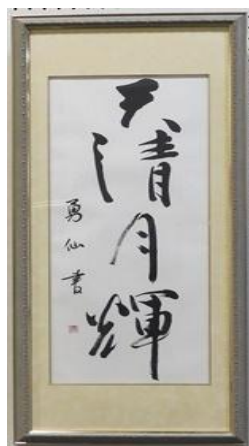 天清月輝
勇仙書